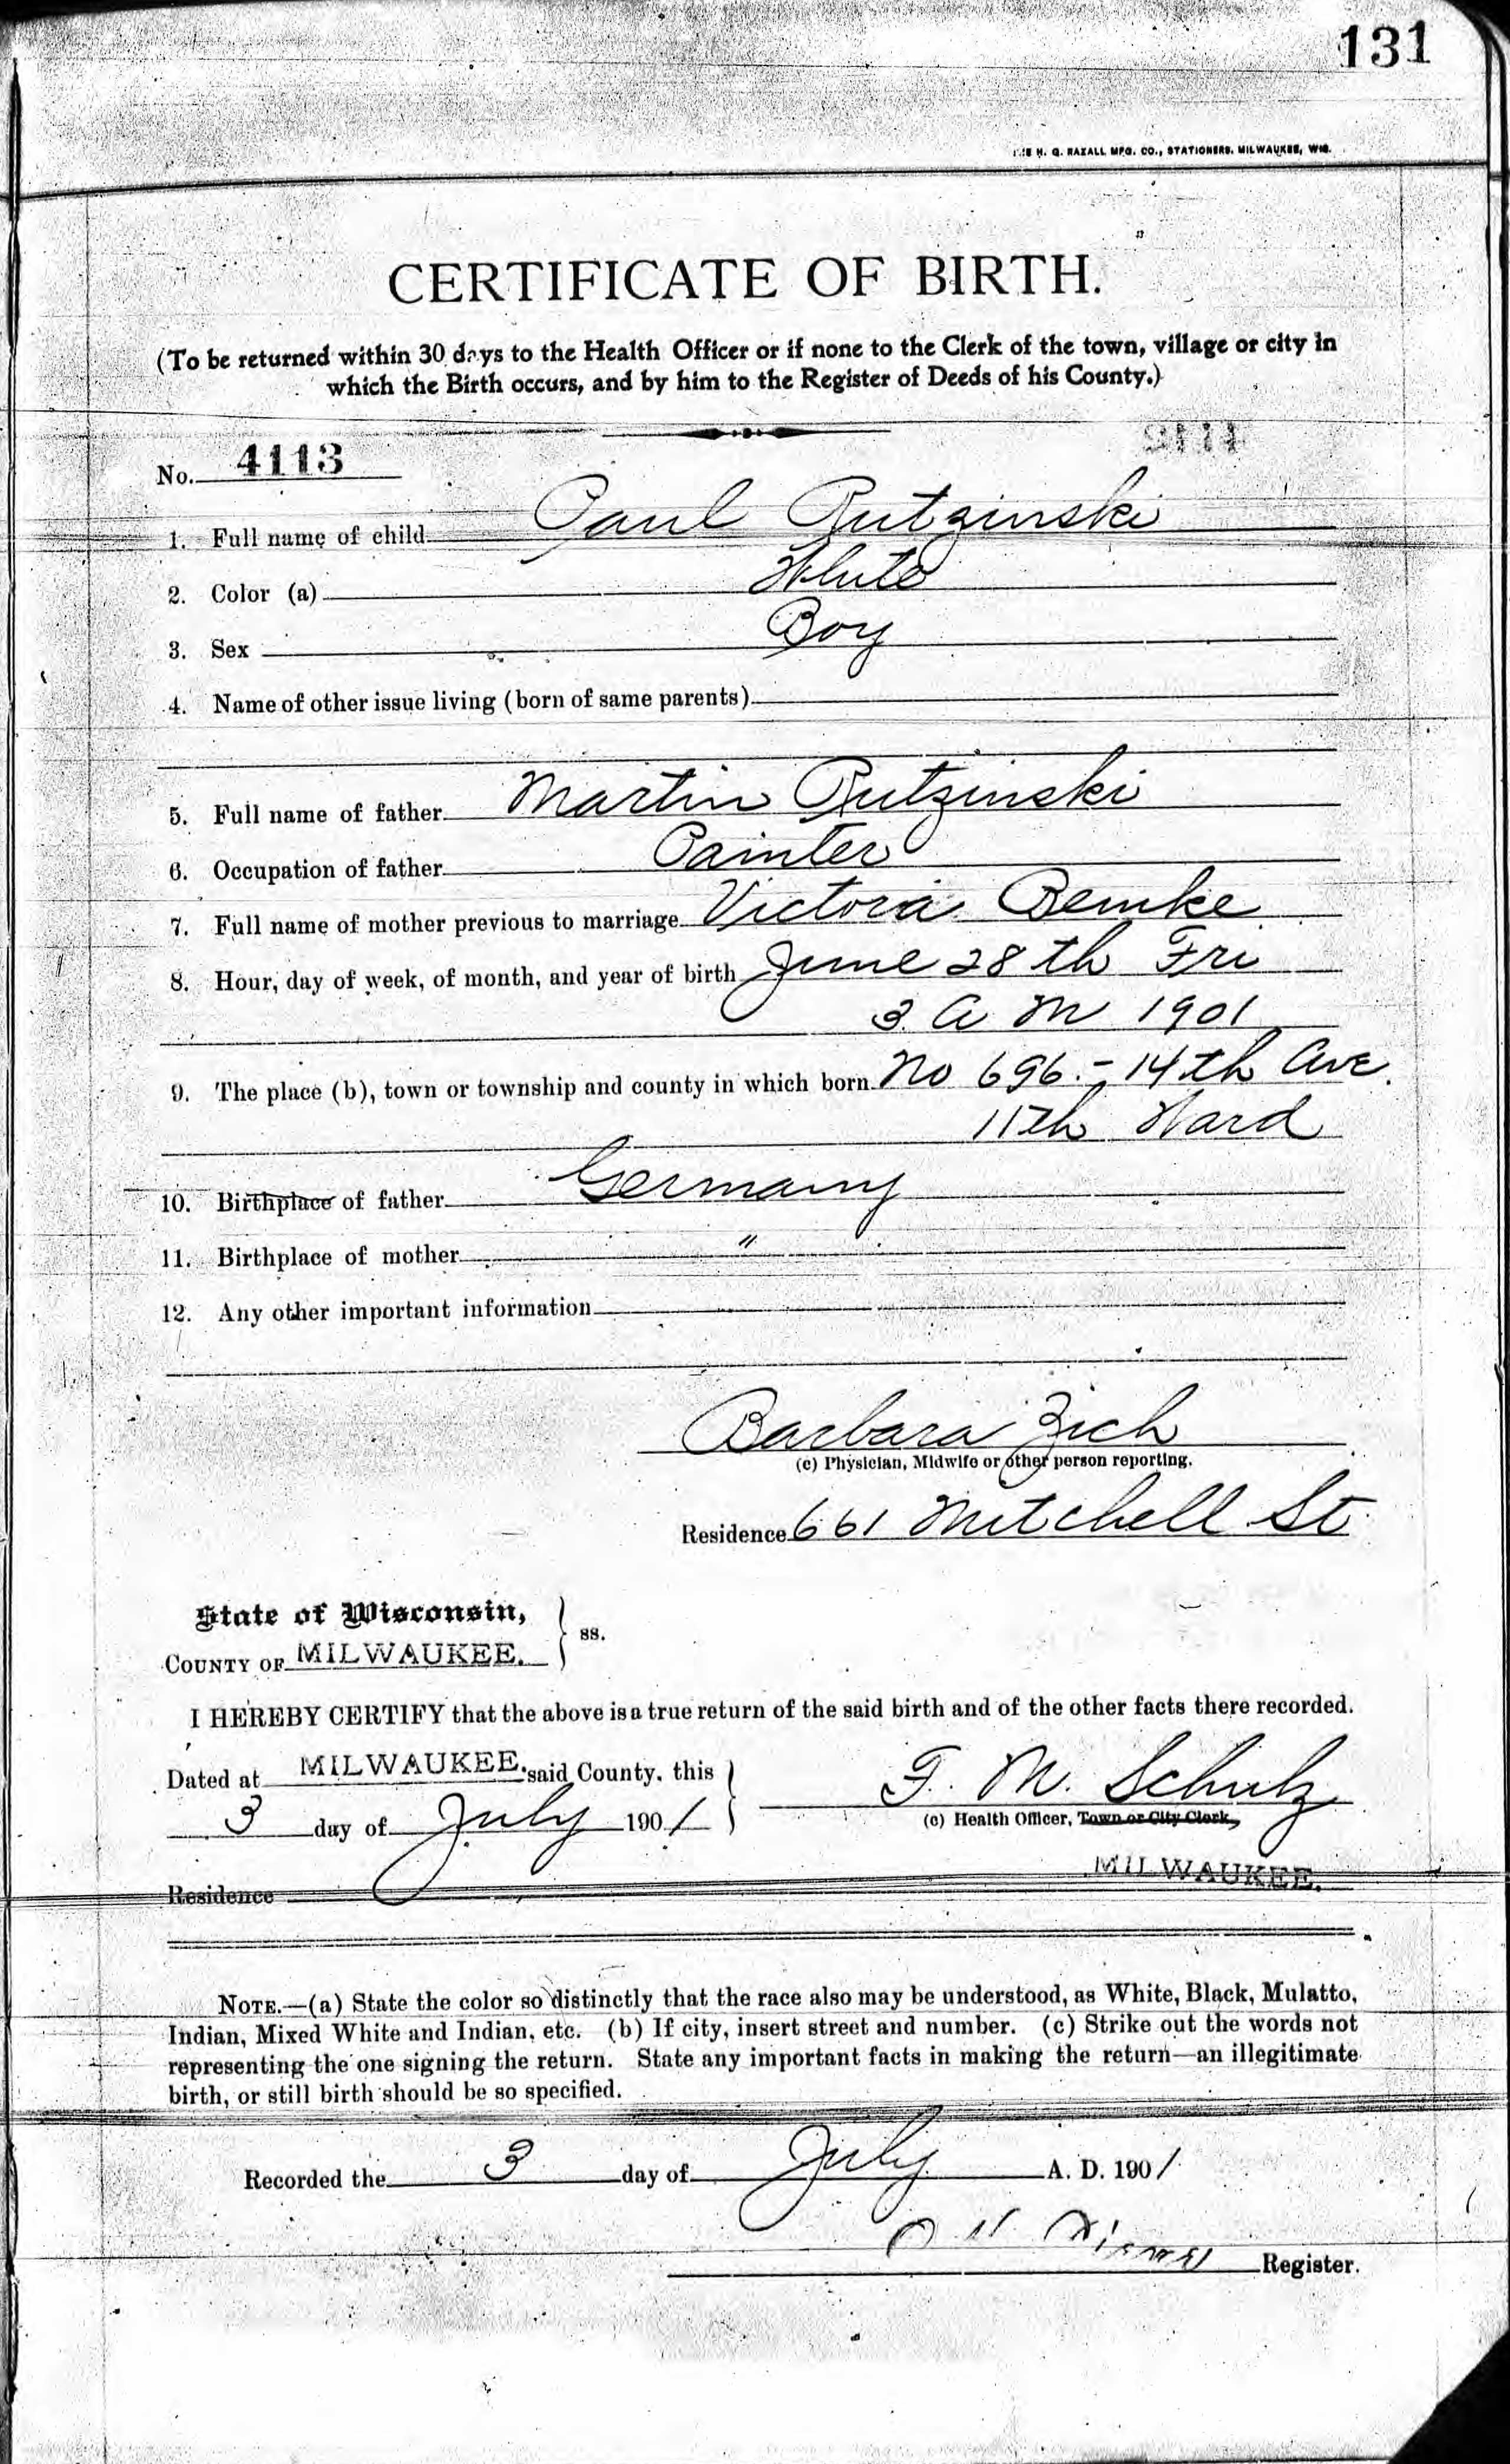 131
H. G. RAZALL MFG. CO., STATIONERS, MILWAUKEE, WIS.
CERTIFICATE OF BIRTH.
(To be returned within 30 days to the Health Officer or if none to the Clerk of the town, village or city in
which the Birth occurs, and by him to the Register of Deeds of his County.)
No. 4113
1. Full name of child Paul Rutzinski
2. Color (a) White
3. Sex Boy
4. Name of other issue living (born of same parents)
5. Full name of father Martin Rutzinski
6. Occupation of father Painter
7. Full name of mother previous to marriage Victoria Bemke
8. Hour, day of week, of month, and year of birth June 28th Fri
3 A M 1901
9. The place (b), town or township and county in which born No 696 - 14th Ave.
11th Ward
10. Birthplace of father Germany
11. Birthplace of mother "
12. Any other important information
Barbara Zich
(c) Physician, Midwife or other person reporting.
Residence 661 Mitchell St
State of Wisconsin,
COUNTY OF MILWAUKEE. } ss.
I HEREBY CERTIFY that the above is a true return of the said birth and of the other facts there recorded.
Dated at MILWAUKEE. said County, this
F. M. Schulz
3 day of July 1901
(c) Health Officer, Town or City Clerk,
MILWAUKEE.
Residence
NOTE.—(a) State the color so distinctly that the race also may be understood, as White, Black, Mulatto,
Indian, Mixed White and Indian, etc. (b) If city, insert street and number. (c) Strike out the words not
representing the one signing the return. State any important facts in making the return—an illegitimate
birth, or still birth should be so specified.
Recorded the 3 day of July A. D. 1901
Register.